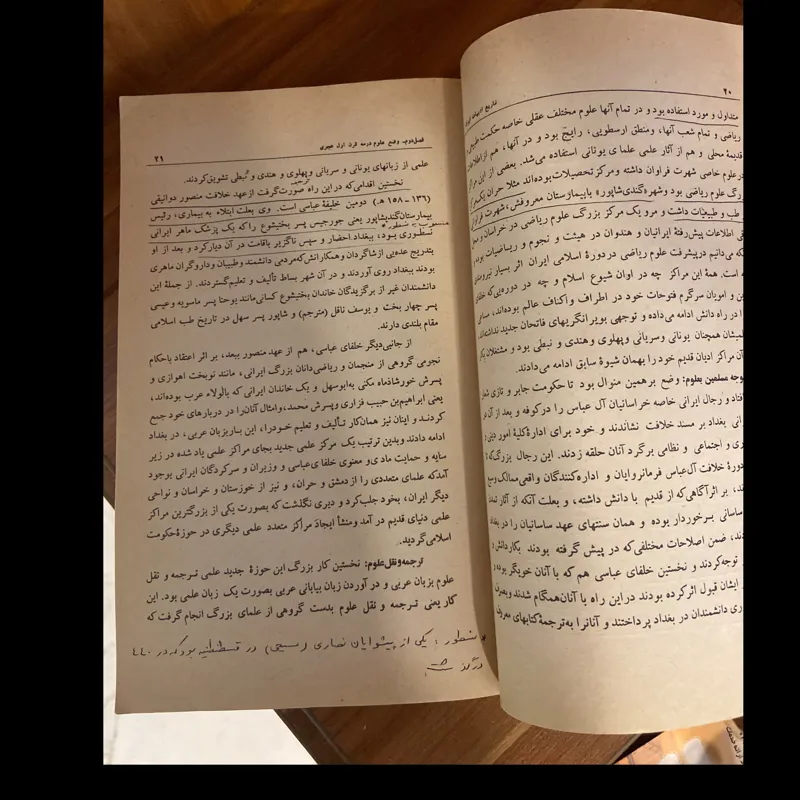 ۲۰
تاریخ ادبیات
متداول و مورد استفاده بود و در تمام آنها علوم مختلف عقلی خاصه حکمت
ریاضی و تمام شعب آنها، ومنطق ارسطویی، رایج بود و در آنها، هم ازاطلاعات
قدیمهٔ محلی و هم از آثار علمی علمای یونانی استفاده می‌شد. بعضی از این مراکز
در علوم خاصی شهرت فراوان داشته ومرکز تحصیلات بوده‌اند مثلا حران یک مرکز
بزرگ علوم ریاضی بود وشهر «گندی‌شاپور» با بیمارستان معروفش، شهرت فراوان
طب و طبیعیات داشت و مرو یک مرکز بزرگ علوم ریاضی در خراسان و
اطلاعات پیش‌رفتهٔ ایرانیان و هندوان در هیئت و نجوم و ریاضیات بود
که می‌دانیم درپیشرفت علوم ریاضی دردورهٔ اسلامی ایران اثر بسیار نیرومند
است. همهٔ این مراکز چه در اوان شیوع اسلام و چه در دوره‌یی‌که خلفای
و امویان سرگرم فتوحات خود در اطراف و اکناف عالم بوده‌اند،
را در راه دانش ادامه می‌داده و توجهی بویرانگریهای فاتحان جدید نداشته‌اند
همچنان یونانی وسریانی وپهلوی و هندی و نبطی بود و مشتغلان
آن مراکز ادیان قدیم خود را بهمان شیوهٔ سابق ادامه می‌دادند.
توجه مسلمین بعلوم: وضع برهمین منوال بود تا حکومت جابر و تازی
افتاد و رجال ایرانی خاصه خراسانیان آل عباس را درکوفه و بعد از آن در
بغداد بر مسند خلافت نشاندند و خود برای ادارهٔ کلیهٔ امور دینی و
و اجتماعی و نظامی برگرد آنان حلقه زدند. این رجال بزرگ که
دورهٔ خلافت آل‌عباس فرمانروایان و اداره‌کنندگان واقعی ممالک
بر اثر آگاهی‌که از قدیم با دانش داشته، و بعلت آنکه از آثار تمدن
ساسانی برخوردار بوده و همان سنتهای عهد ساسانیان را در بغداد
ضمن اصلاحات مختلفی‌که در پیش گرفته بودند بکار دانش
توجه‌کردند و نخستین خلفای عباسی هم که با آنان خویگر بوده
ایشان قبول اثرکرده بودند دراین راه با آنان همگام شدند
دانشمندان در بغداد پرداختند و آنانرا به‌ترجمهٔ کتابهای معروف
فصل دوم، وضع علوم درسه قرن اول هجری
۲۱
علمی از زبانهای یونانی و سریانی وپهلوی و هندی و نبطی تشویق‌کردند.
ترجمه
نخستین اقدامی‌که در این راه صورت‌گرفت از عهد خلافت منصور دوانیقی
(۱۳۶-۱۵۸ هـ.) دومین خلیفهٔ عباسی است. وی بعلت ابتلاء به بیماری، رئیس
بیمارستان گندیشاپور یعنی جورجیس پسر بختیشوع را که یک پزشک ماهر ایرانی
منسوب به نسطور*
نسطوری بود، ببغداد احضار و سپس ناگزیر باقامت در آن دیار کرد و بعد از او
بتدریج عده‌یی از شاگردان و همکارانش که مردمی دانشمند وطبیبان وداروگران ماهری
بودند ببغداد روی آوردند و در آن شهر بساط تألیف و تعلیم‌گستردند. از جملهٔ این
دانشمندان غیر از برگزیدگان خاندان بختیشوع کسانی مانند یوحنا پسر ماسویه و عیسی
پسر چهار بخت و یوسف ناقل (مترجم) و شاپور پسر سهل در تاریخ طب اسلامی
مقام بلندی دارند.
از جانبی‌دیگر خلفای عباسی، هم از عهد منصور ببعد، بر اثر اعتقاد باحکام
نجومی گروهی از منجمان و ریاضی‌دانان بزرگ ایرانی، مانند نوبخت اهوازی و
پسرش خورشاذماه مکنی به‌ابوسهل و یک خاندان ایرانی که بالولاء عرب بوده‌اند،
یعنی ابراهیم‌بن حبیب فزاری وپسرش محمد، وامثال آنان‌را در دربارهای خود جمع
کردند و اینان نیز همان‌کار تألیف و تعلیم خود را، این بار بزبان عربی، در بغداد
ادامه دادند وبدین ترتیب یک مرکز علمی جدید بجای مراکز علمی یاد شده در زیر
سایه و حمایت مادی و معنوی خلفای عباسی و وزیران و سرکردگان ایرانی بوجود
آمدکه علمای متعددی را از دمشق و حران، و نیز از خوزستان و خراسان و نواحی
دیگر ایران، بخود جلب‌کرد و دیری نگذشت‌که بصورت یکی از بزرگترین مراکز
علمی دنیای قدیم در آمد ومنشأ ایجاد مراکز متعدد علمی دیگری در حوزهٔ حکومت
اسلامی گردید.
ترجمه ونقل علوم: نخستین کار بزرگ این حوزهٔ جدید علمی ترجمه و نقل
علوم بزبان عربی و در آوردن زبان بیابانی عربی بصورت یک زبان علمی بود. این
کار یعنی ترجمه و نقل علوم بدست گروهی از علمای بزرگ انجام گرفت که
* نسطور: یکی از پیشوایان نصاری (مسیحی) در قسطنطنیه بود که در ۴۴۰
درگذشت